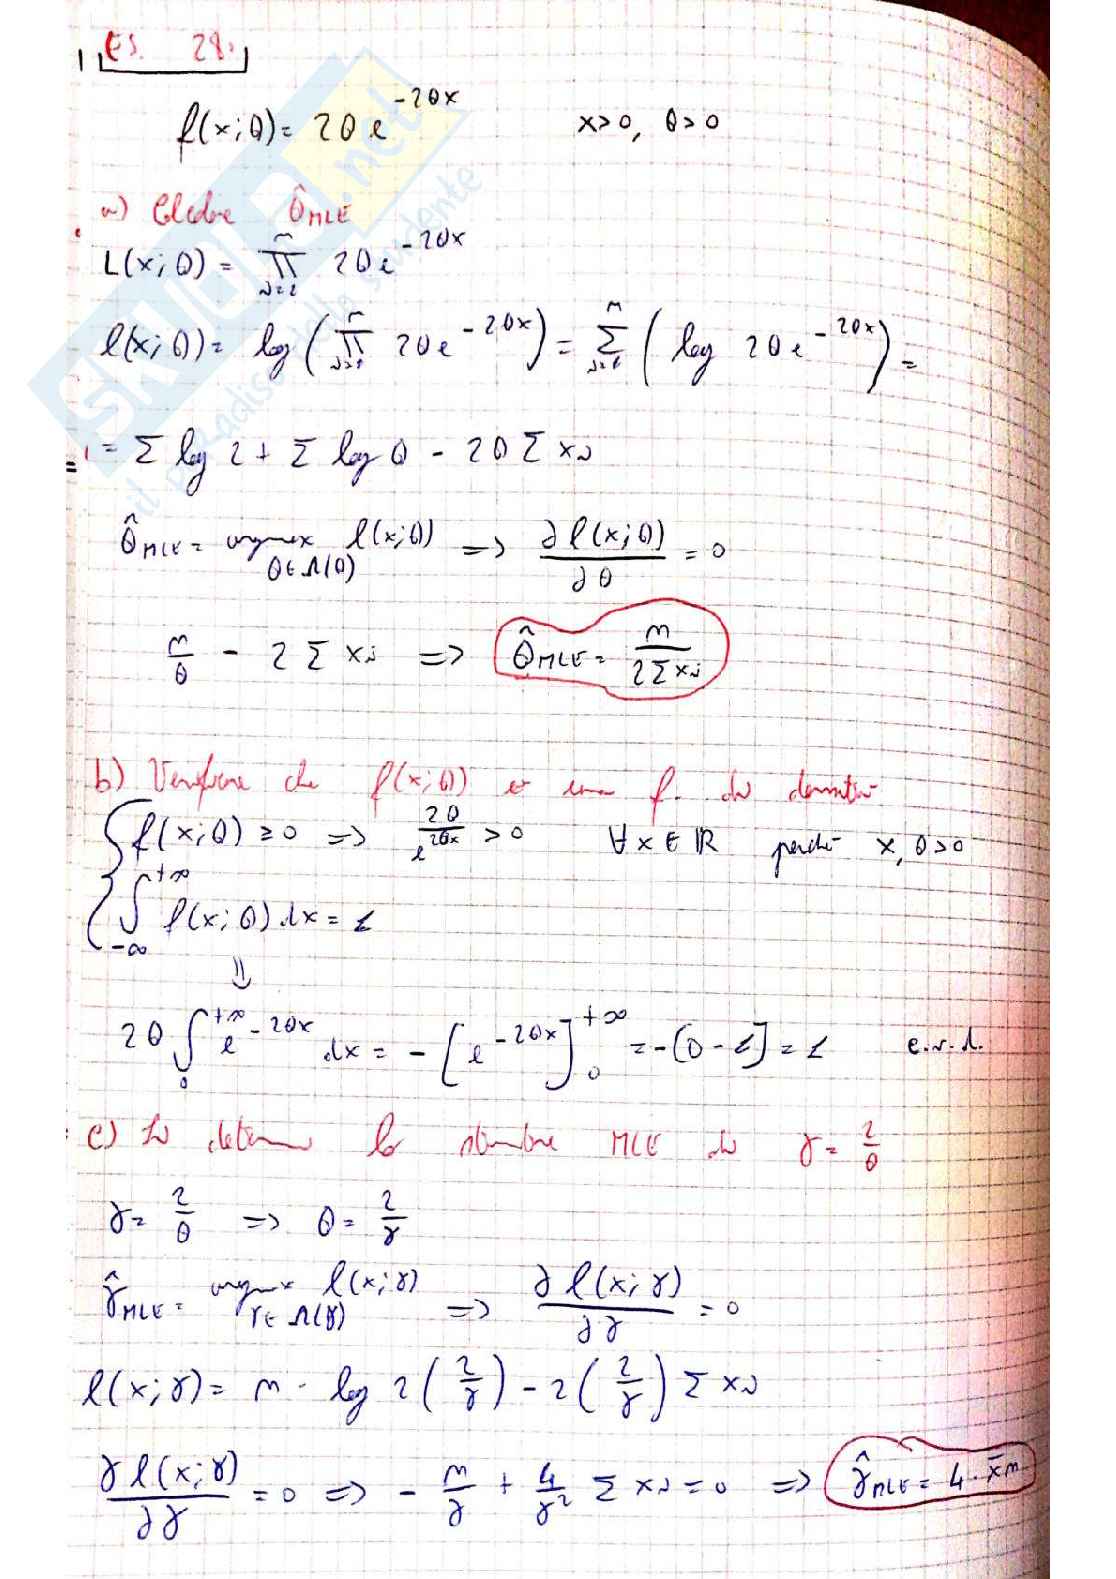 Es. 28.
f(x;θ) = 2θe^{-2θx}    x>0, θ>0
a) Calcolare θ̂_MLE
L(x;θ) = ∏_{i=1}^{n} 2θe^{-2θx}
l(x;θ) = log(∏_{i=1}^{n} 2θe^{-2θx}) = Σ_{i=1}^{n} (log 2θe^{-2θx}) =
= Σ log 2 + Σ log θ - 2θ Σ xi
θ̂_MLE = argmax_{θ∈Λ(θ)} l(x;θ) => ∂l(x;θ)/∂θ = 0
n/θ - 2 Σ xi => θ̂_MLE = n/(2Σxi)
b) Verificare che f(x;θ) è una f. di densità
{ f(x;θ) ≥ 0 => 2θ/e^{2θx} > 0    ∀x∈ℝ perchè x, θ>0
∫_{-∞}^{+∞} f(x;θ) dx = 1
⇓
2θ ∫_0^{+∞} e^{-2θx} dx = -[e^{-2θx}]_0^{+∞} = -[0-1] = 1    c.v.d.
c) Si determini lo stimatore MLE di γ = 2/θ
γ = 2/θ => θ = 2/γ
γ̂_MLE = argmax_{γ∈Λ(γ)} l(x;γ) => ∂l(x;γ)/∂γ = 0
l(x;γ) = n · log 2(2/γ) - 2(2/γ) Σ xi
∂l(x;γ)/∂γ = 0 => - n/γ + 4/γ² Σ xi = 0 => γ̂_MLE = 4 · x̄n
SKUOLA.net
il paradiso dello studente